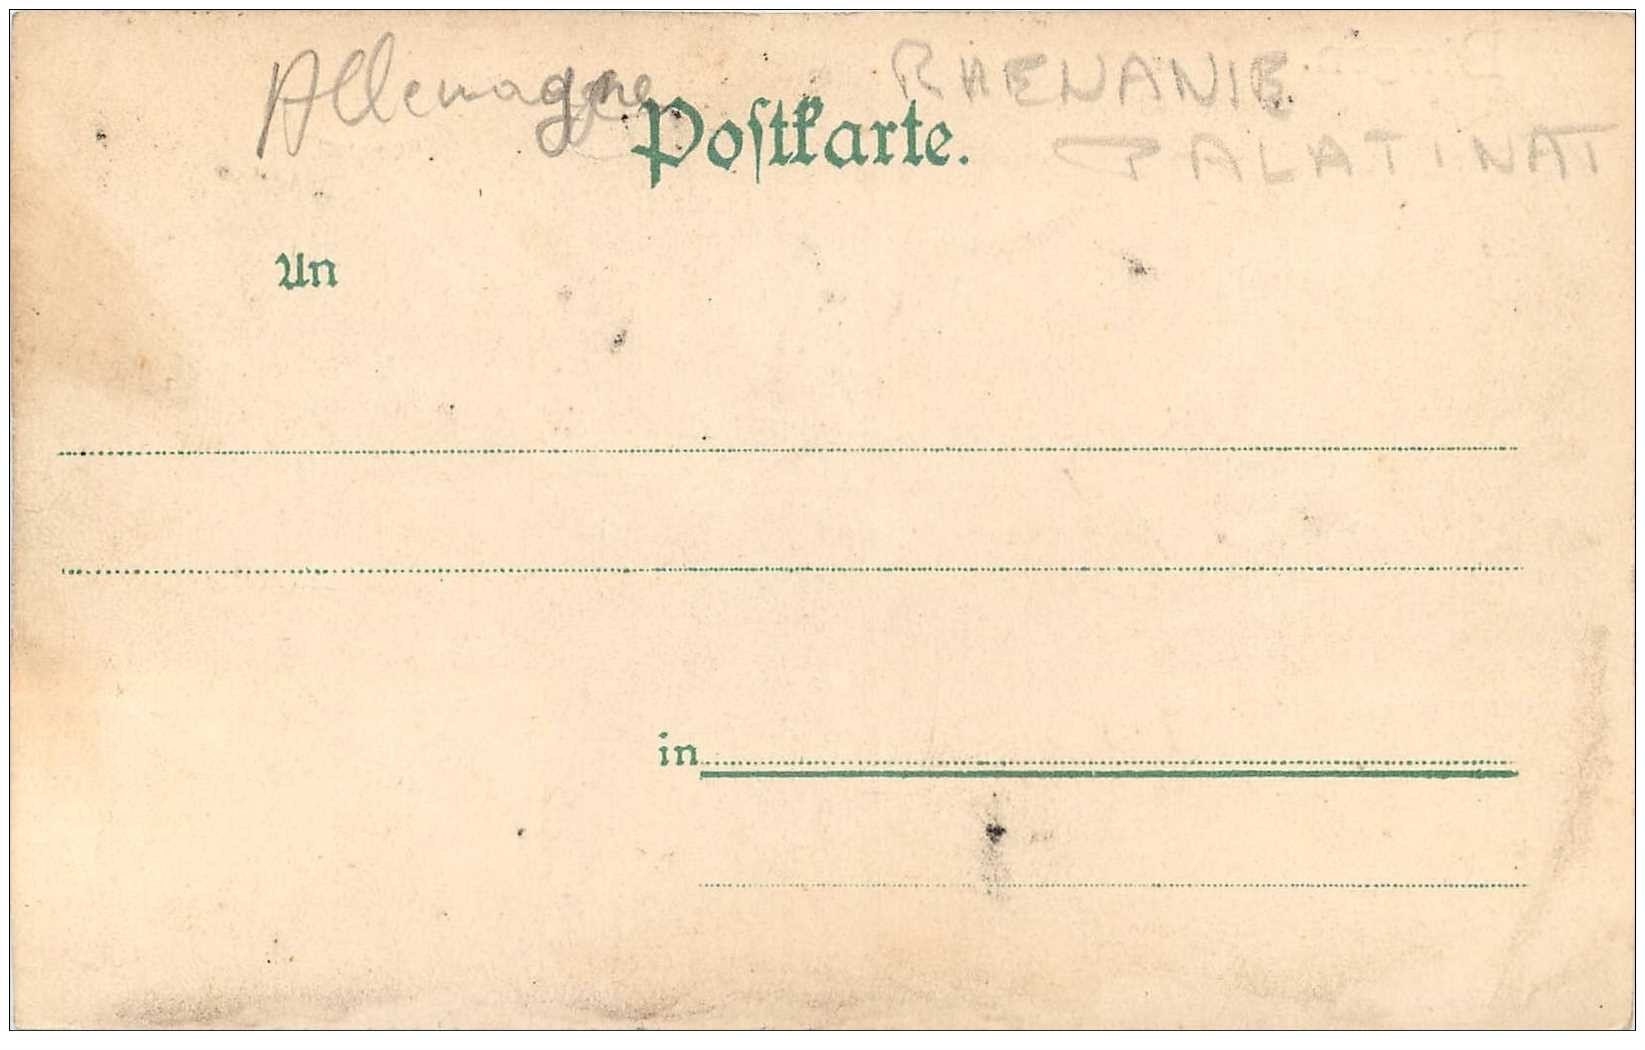 Allemagne RHENANIE
Poſtkarte. PALATINAT
An
in